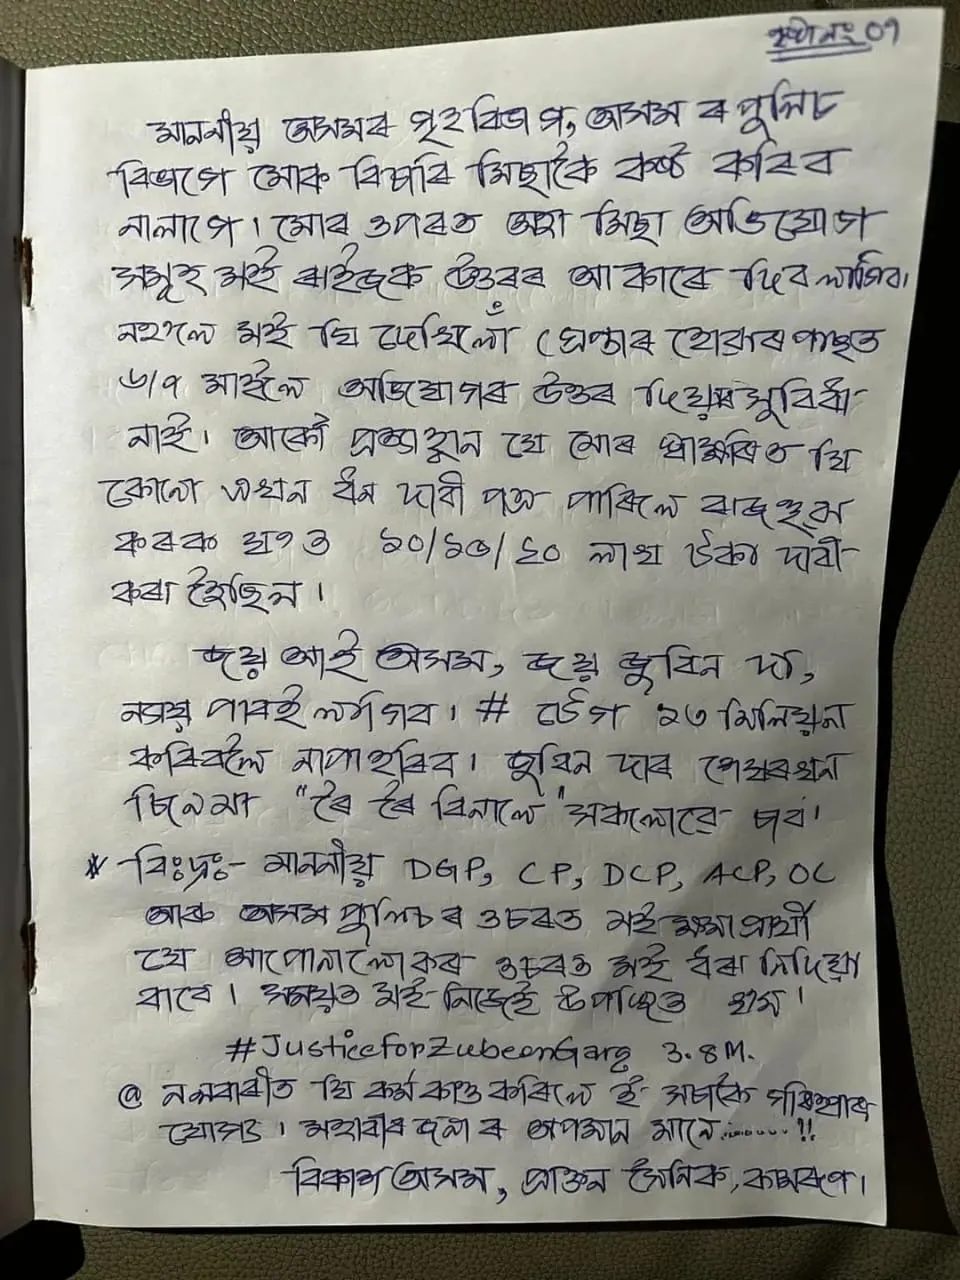 পৃষ্ঠা নং 07
মাননীয় অসমৰ গৃহ বিভাগ, অসম ৰ পুলিচ
বিভাগে মোক বিচাৰি মিছাকৈ কষ্ট কৰিব
নালাগে। মোৰ ওপৰত অহা মিছা অভিযোগ
সমূহ মই ৰাইজক উত্তৰৰ আকাৰে দিব লাগিব।
নহ'লে মই যি দেখিলোঁ গ্ৰেপ্তাৰ হোৱাৰ পাছত
৬/৭ মাহলৈ অভিযোগৰ উত্তৰ দিয়াৰ সুবিধা
নাই। আকৌ প্ৰত্যাহ্বান যে মোৰ স্বাক্ষৰিত যি
কোনো এখন ধন দাবী পত্ৰ পাৰিলে ৰাজহুৱা
কৰক য'ত ১০/১৫/২০ লাখ টকা দাবী
কৰা হৈছিল।
জয় আই অসম, জয় জুবিন দা,
ন্যায় পাবই লাগিব। # টেগ ১৩ মিলিয়ন
কৰিবলৈ নাপাহৰিব। জুবিন দাৰ শেষৰখন
চিনেমা "ৰৈ ৰৈ বিনালে" সকলোৱে চাব।
* বিঃদ্ৰঃ- মাননীয় DGP, CP, DCP, ACP, OC
আৰু অসম পুলিচ ৰ ওচৰত মই ক্ষমাপ্ৰাৰ্থী
যে আপোনালোকৰ ওচৰত মই ধৰা নিদিয়া
বাবে। সময়ত মই নিজেই উপস্থিত হম।
#JusticeforZubeenGarg 3.8M.
@ নলবাৰীত যি কৰ্মকাণ্ড কৰিলে ই সচাকৈ গৰিহণাৰ
যোগ্য। মহাবীৰ জনা ৰ অপমান মানে.........!!
বিকাশ অসম, প্ৰাক্তন সৈনিক, কামৰূপ।